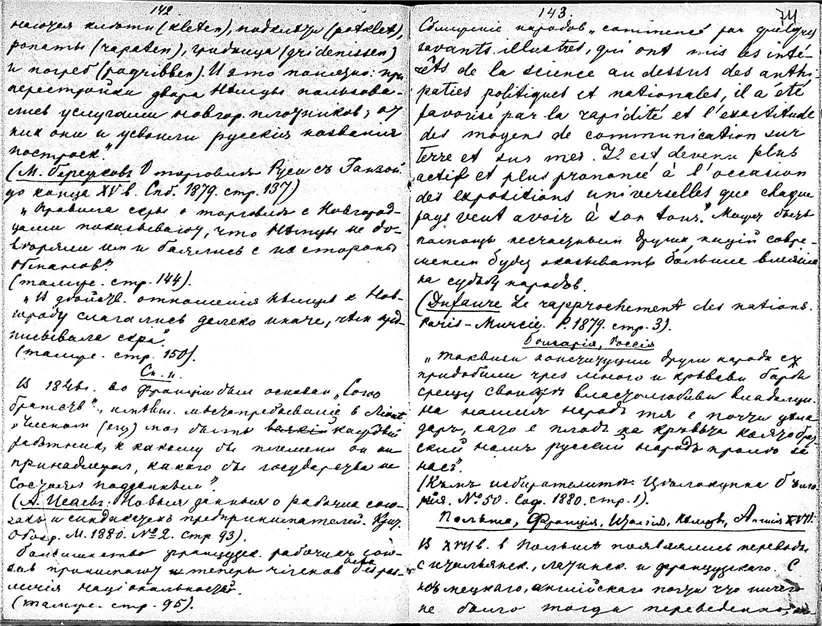 142
клети (kleten), подклети (potklet),
ропаты (rapaten), гридница (gridenissen)
и погреб (pogribben). И это понятно: при
перестройки двора Немцы пользова-
лись услугами новгор. плотников; от
них они и усвоили русския названия
построек."
(М. Бережков О торговля Руси съ Ганзой
до конца XV в. Спб. 1879. стр. 137)
"Правила скры о торговля с Новгород-
цами показывают, что Немцы не до-
веряли им и боялись с их стороны
обманов".
(там же. стр. 144).
отношения немцев к Нов-
городу слагались далеко иначе, чем пред-
писывала скра".
(там же. стр. 150).
В 1848г. во Франции был основан "Союз
братств",
"Членом (его) мог быть всякий каждый
работник, к какому бы племени он ни
принадлежал, какого бы государства не
состоял подданным".
(А. Исаев: Новыя данныя о рабочих сою-
зах и синдикатах предпринимателей. Юрид.
Обозр. М. 1880. № 2. стр 93).
Большинство французск. рабочих сою-
зов принимают и теперь членов без раз-
личия национальностей.
(там же. стр. 95).
143.
74
Сближение народов "commencé par quelques
savants illustres, qui ont mis les inté-
rêts de la science au dessus des anthi-
paties politiques et nationales, il a été
favorisé par la rapidité et l'exactitude
des moyens de communication sur
terre et sur mer. Il est devenu plus
actif et plus prononcé à l'occasion
des expositions universelles que chaque
pays veut avoir à son tour". Может быть
помощь несчастным других наций совре-
менем будет оказывать большее влияние
на судьбу народов.
(Dufaure Le rapprochement des nations.
Paris-Murcie. P. 1879. стр. 3).
Болгария, Россия
"Таквизи конституции други народи съ
придобили чрез много и кървави борби
срещу своитѣ властолюбиви владетели.
На нашия народъ тя е почти
даръ, като е плодъ на кръвьта
нашъ русский народъ пролѣ за
насъ".
(Къмъ избирателитѣ. Цѣлокупна Бълга-
рия. № 50. Соф. 1880. стр. 1).
Польша, Франция, Италия, Немцы, Англия XVII.
В XVII в. в Польше появлялись переводы
с итальянск., латинск. и французскаго. С
немецкаго, английскаго почти что ничего
не было тогда переведенно,